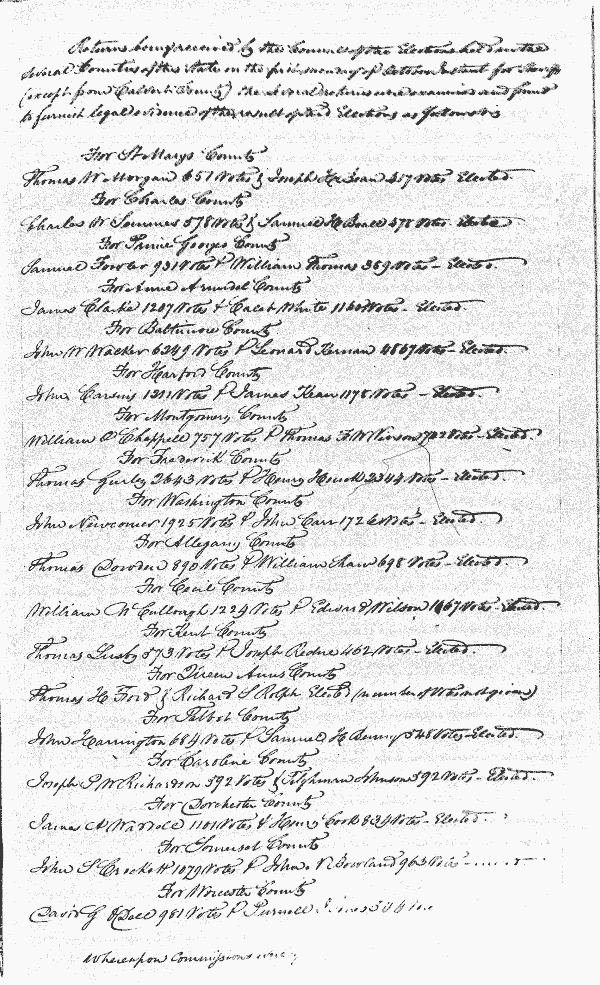 Returns being received by the Council of the Elections held in the
several Counties of this State on the first monday of October Instant for Sheriffs
(except from Calvert County) the several returns were examined and found
to furnish legal evidence of the result of said Elections as follows viz
For St Marys County
Thomas W Morgan 651 Votes & Joseph 457 Votes Elected.
For Charles County
Charles W Semmes 578 Votes & Samuel H Beall 478 Votes. Elected
For Prince Georges County
Samuel Fowler 931 Votes & William Thomas 369 Votes - Elected.
For Anne Arundel County
James Clarke 1207 Votes & Caleb White 1160 Votes - Elected.
For Baltimore County
John W Walker 6249 Votes & Leonard 4867 Votes - Elected.
For Harford County
John Carsins 1311 Votes & James Kean 1178 Votes - Elected.
For Montgomery County
William O Chappell 757 Votes & Thomas F W Vinson Votes - Elected
For Frederick County
Thomas Gurley 2643 Votes & Henry Houck 2344 Votes - Elected
For Washington County
John Newcomer 1925 Votes & John Carr 1726 Votes - Elected.
For Allegany County
Thomas Dowden 890 Votes & William Shaw 698 Votes - Elected.
For Cecil County
William McCullough 1224 Votes & Edward Wilson 1167 Votes - Elected.
For Kent County
Thomas Lusby 573 Votes & Joseph Redue 462 Votes - Elected.
For Queen Anns County
Thomas H Ford & Richard S Rolph Elected (number of Votes not given)
For Talbot County
John Harrington 684 Votes & Samuel H Benny 548 Votes - Elected.
For Caroline County
Joseph P W Richardson 592 Votes & Tilghman Johnson 392 Votes - Elected.
For Dorchester County
James A Waddell 1101 Votes & Henry Cook 824 Votes - Elected.
For Somerset County
John S Crockett 1079 Votes & John N Bowland 963 Votes -
For Worcester County
David G Odell 981 Votes & Purnell
Whereupon Commissions were